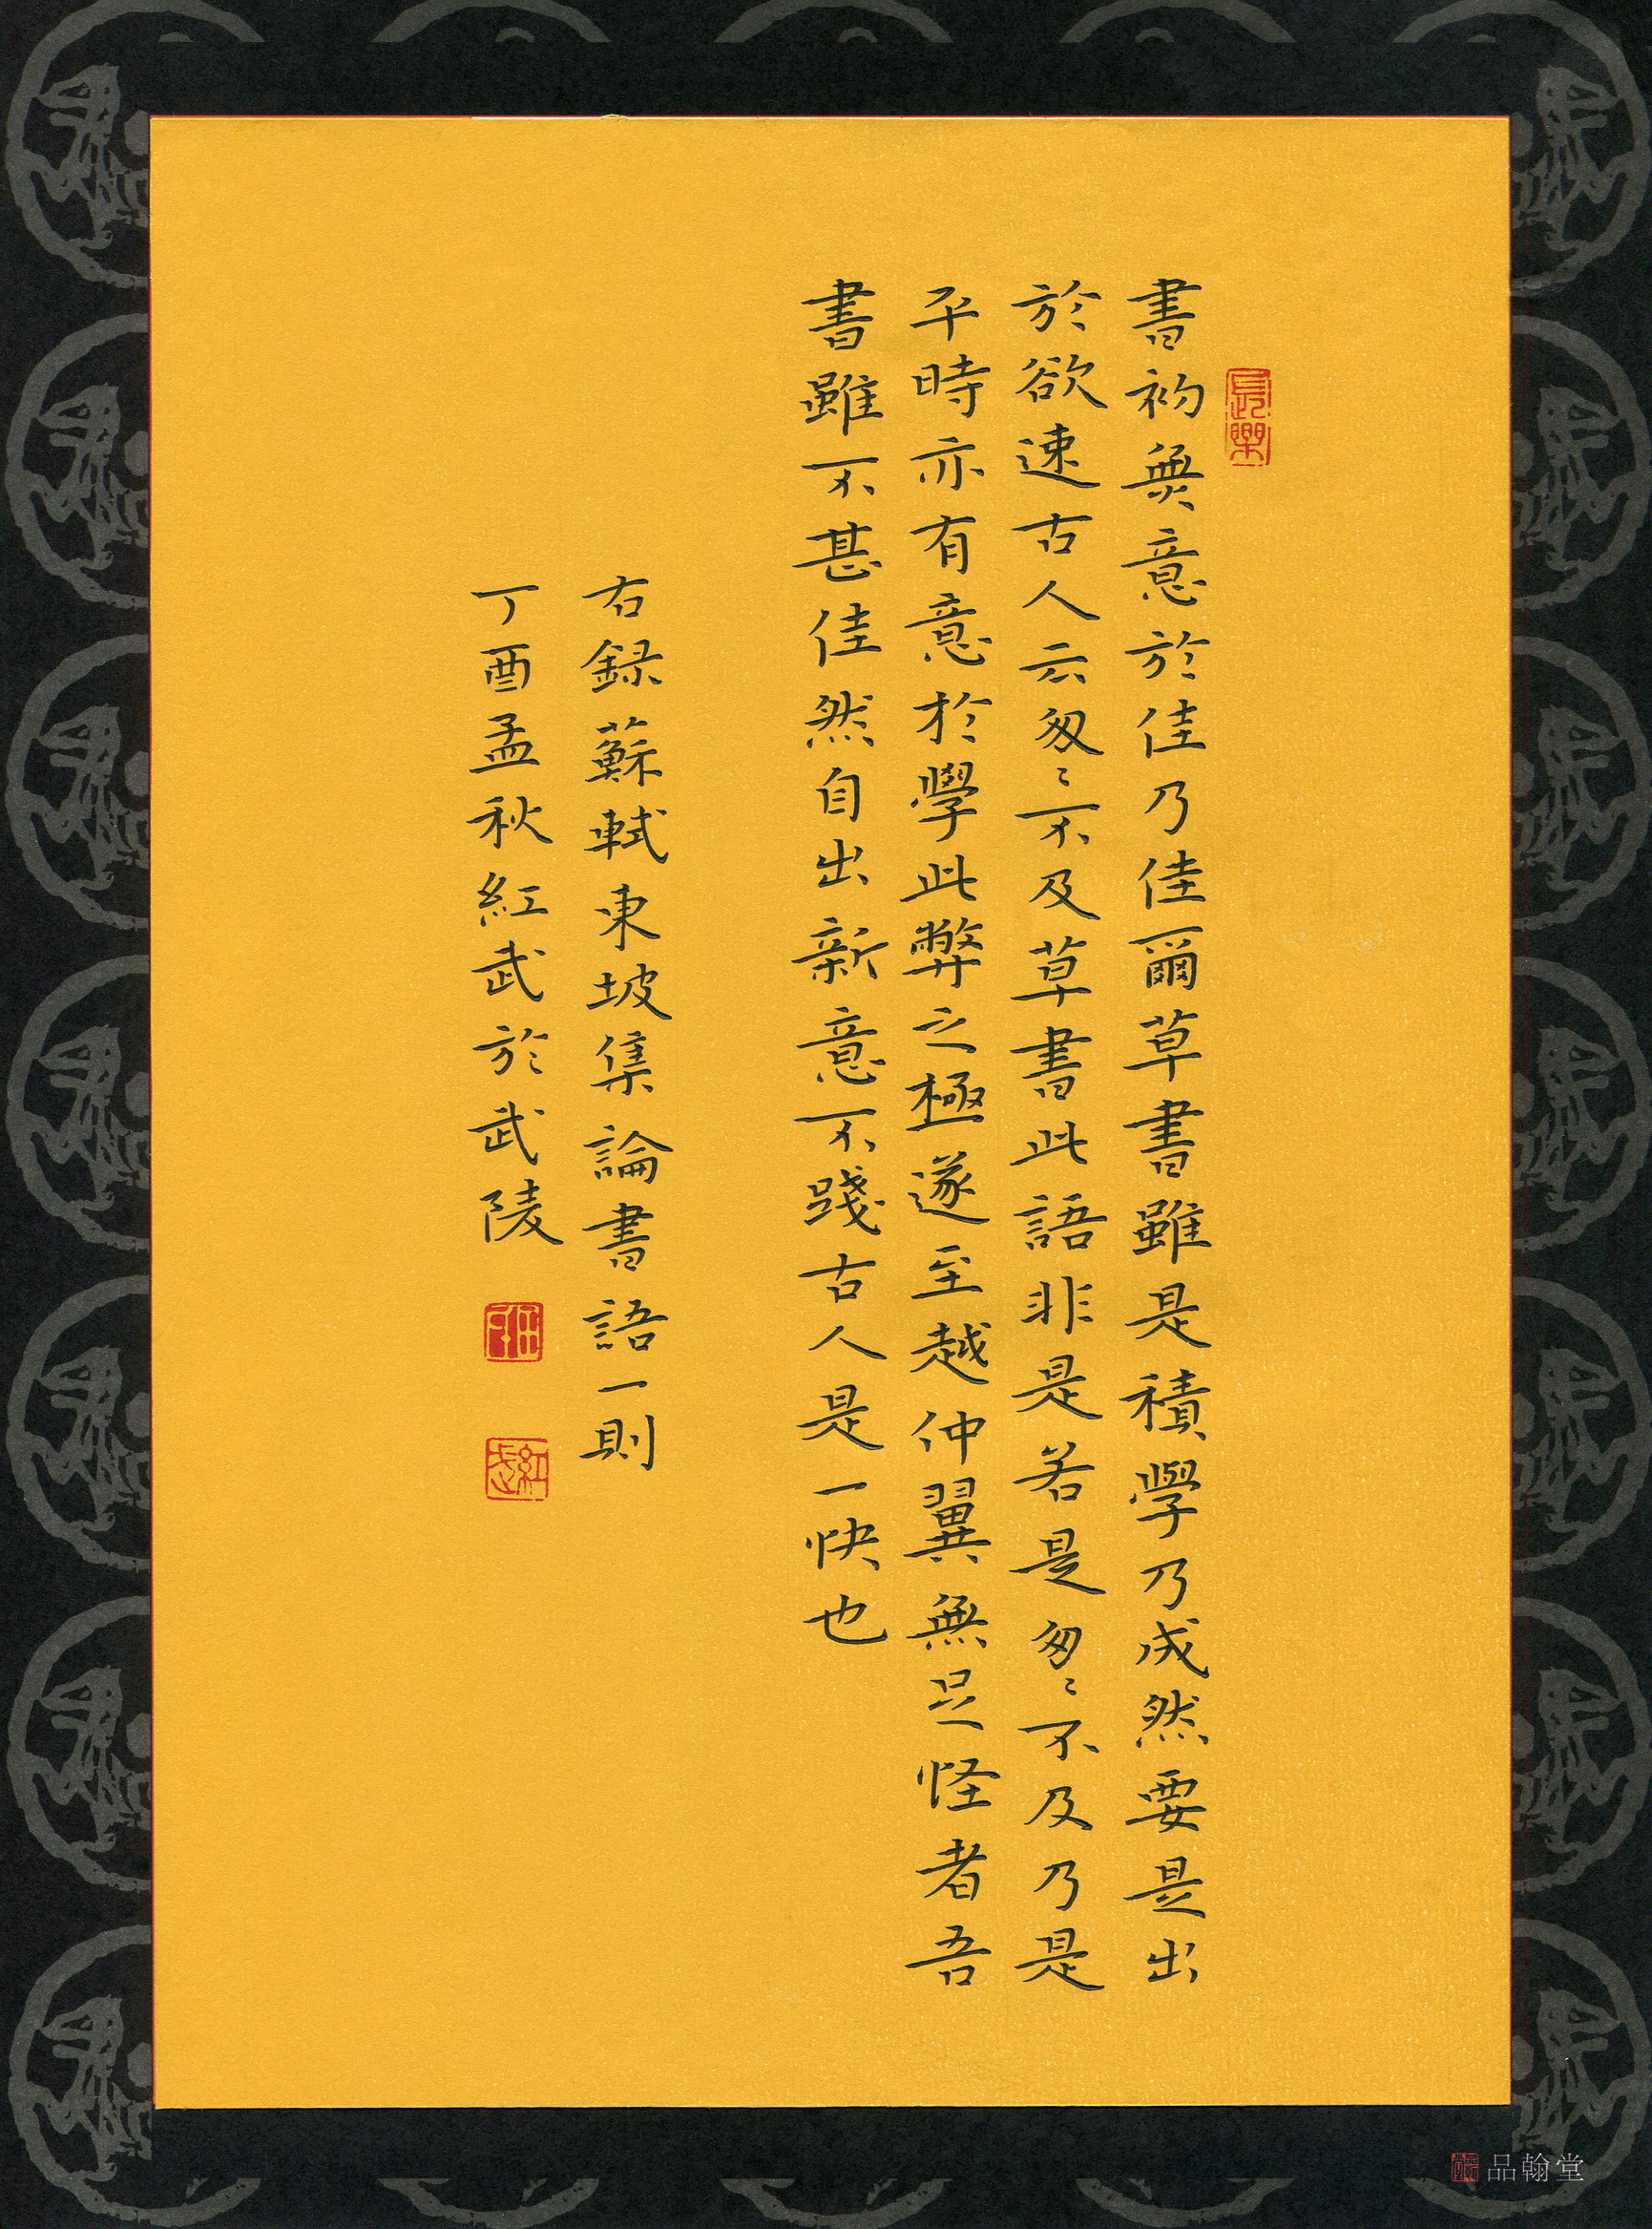 書初無意於佳乃佳爾草書雖是積學乃成然要是出
於欲速古人云匆〻不及草書此語非是若是匆〻不及乃是
平時亦有意於學此弊之極遂至越仲翼無足怪者吾
書雖不甚佳然自出新意不踐古人是一快也
右録蘇軾東坡集論書語一則
丁酉孟秋紅武於武陵
長樂
紅武
品翰堂